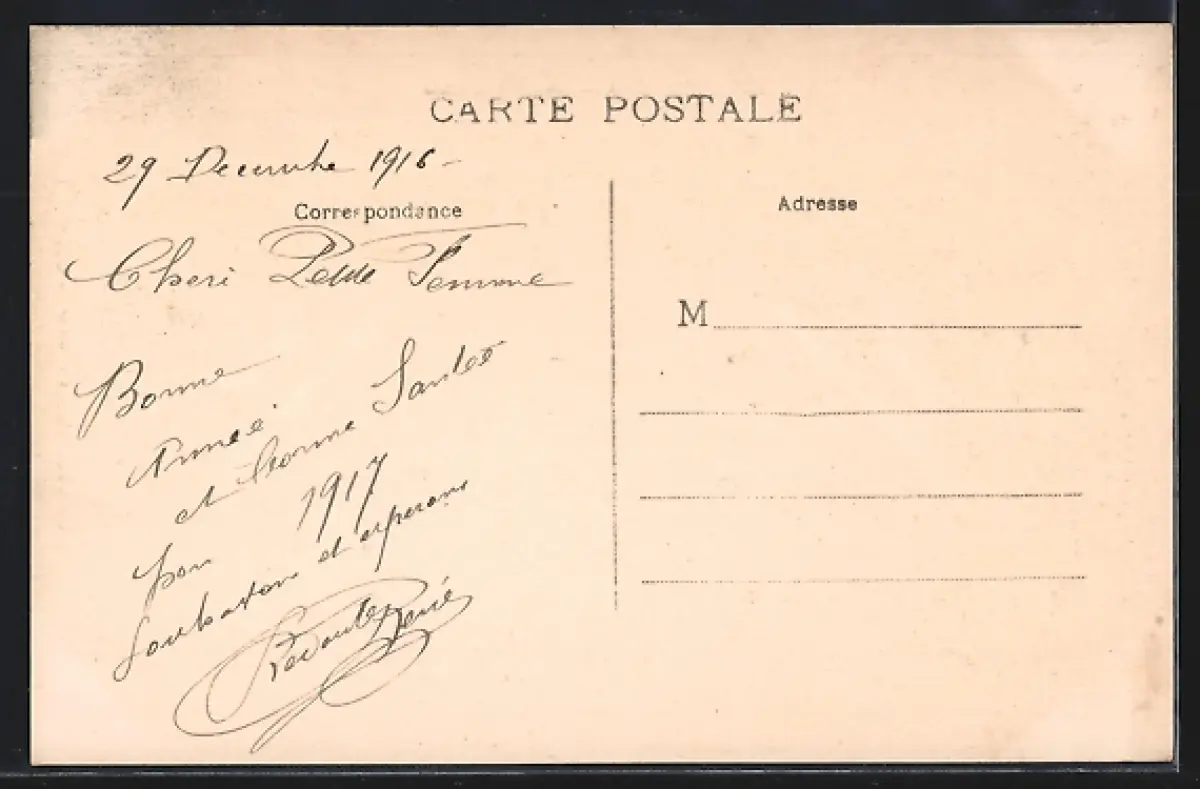 CARTE POSTALE
29 Decembre 1916 -
Correspondance
Cheri Petite Femme
Bonne
Année
et bonne Santée
pour 1917
Souhaiton et esperons
René
Adresse
M